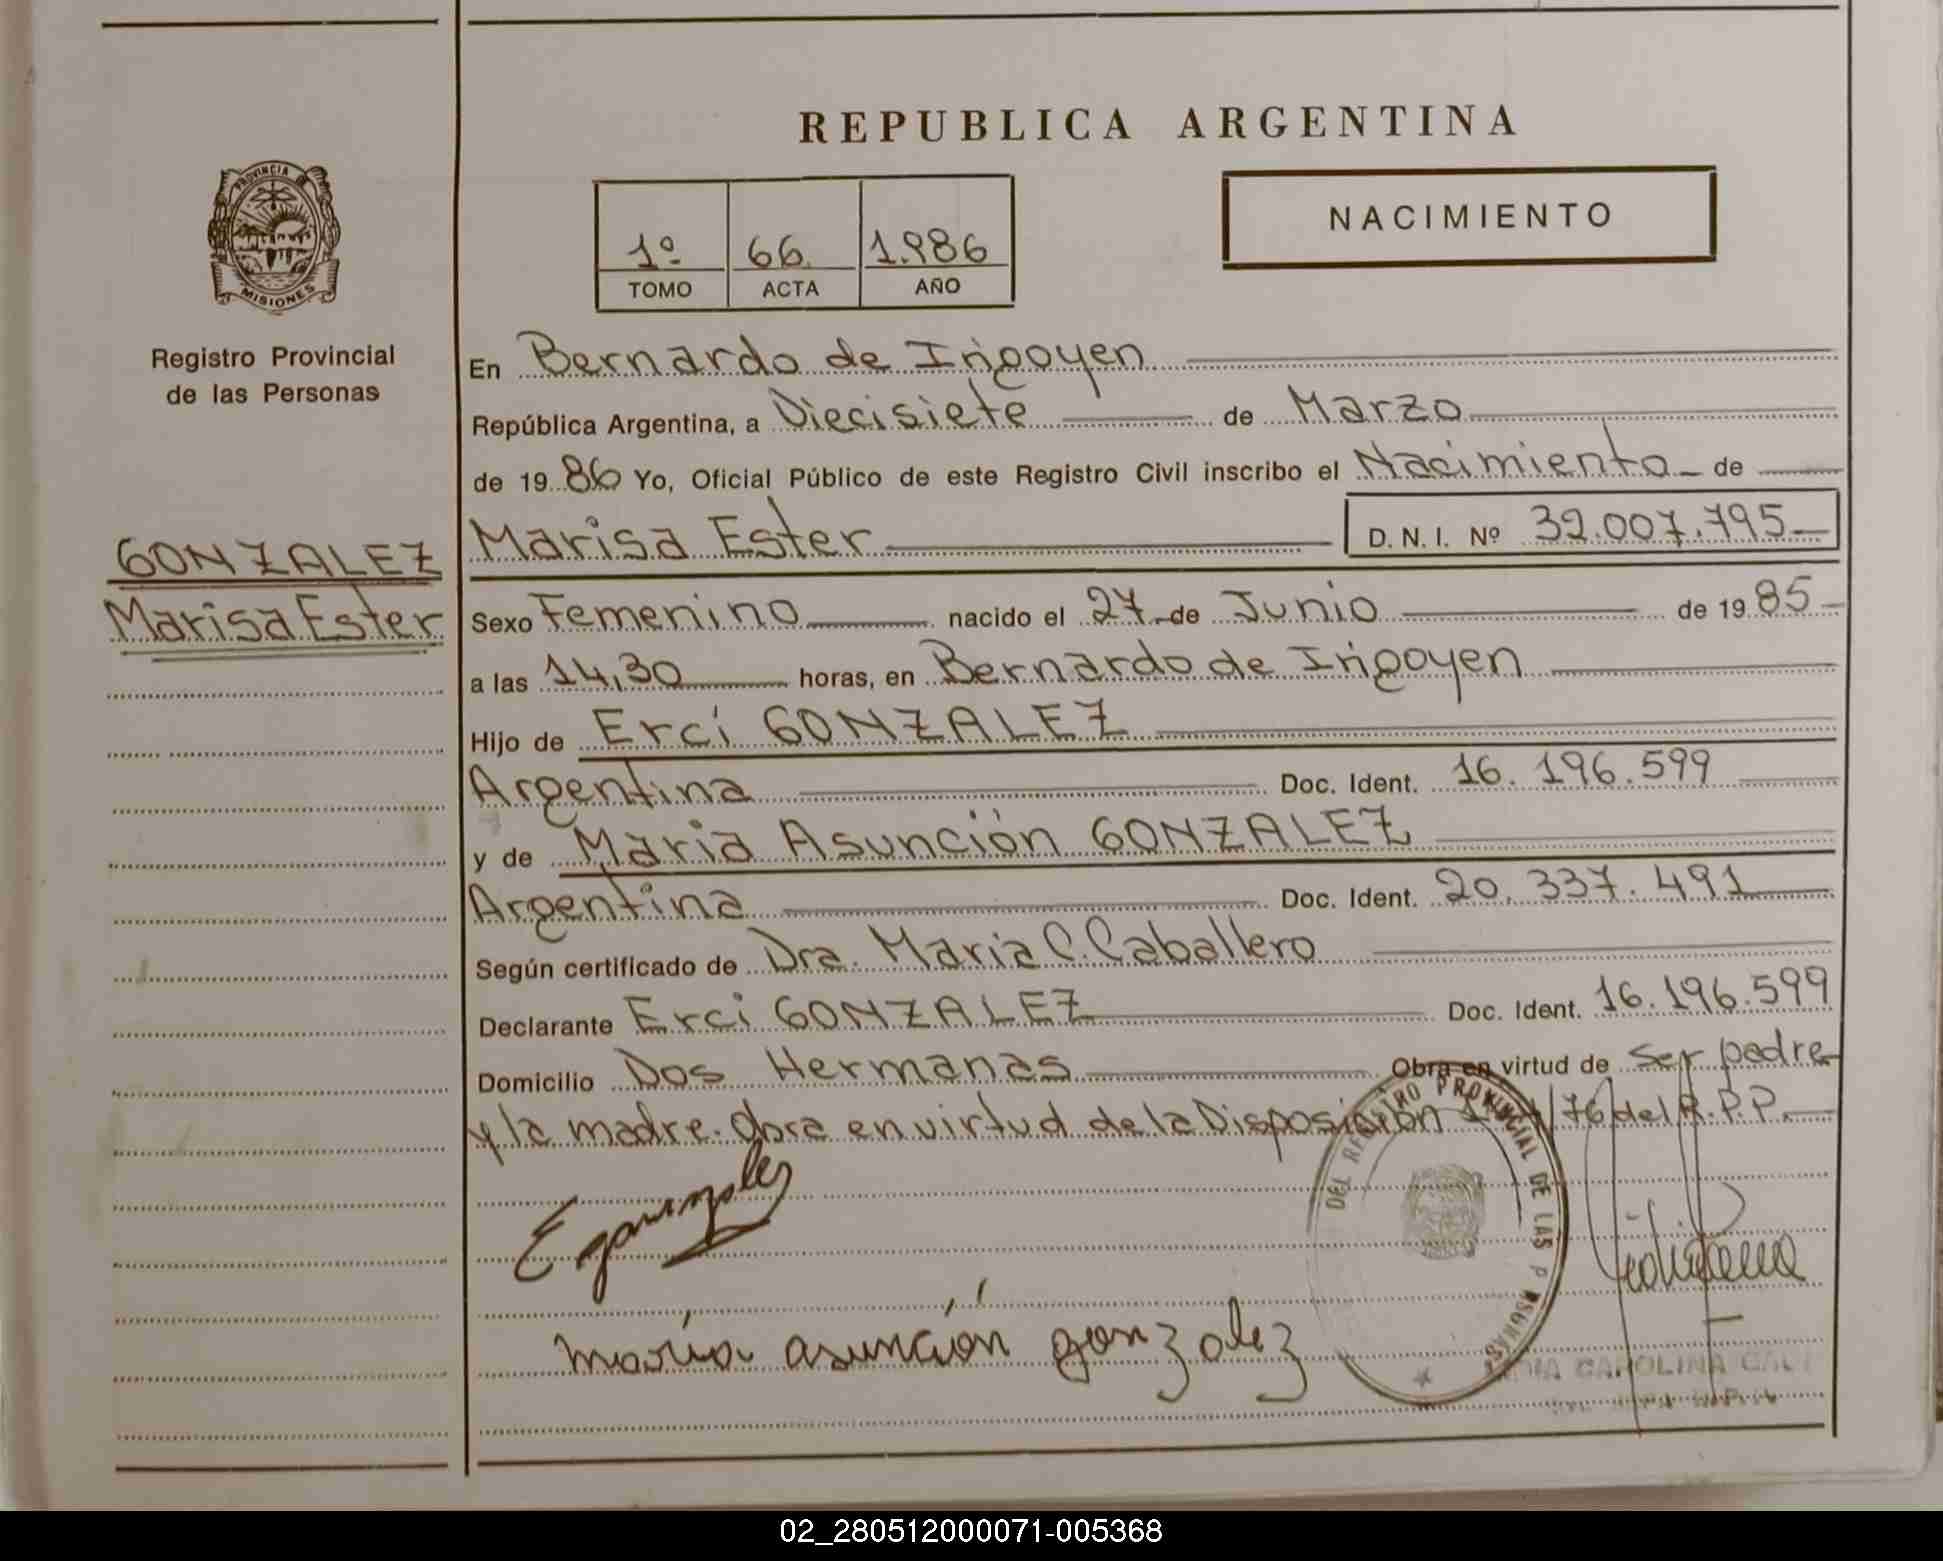 REPUBLICA ARGENTINA
PROVINCIA
MISIONES
NACIMIENTO
1º 66. 1.986
TOMO ACTA AÑO
Registro Provincial
de las Personas
GONZALEZ
Marisa Ester
En Bernardo de Irigoyen
República Argentina, a Diecisiete de Marzo
de 1986 Yo, Oficial Público de este Registro Civil inscribo el Nacimiento de
Marisa Ester D. N. I. Nº 32.007.795
Sexo Femenino nacido el 27 de Junio de 1985
a las 14,30 horas, en Bernardo de Irigoyen
Hijo de Erci GONZALEZ
Argentina Doc. Ident. 16.196.599
y de Maria Asunción GONZALEZ
Argentina Doc. Ident. 20.337.491
Según certificado de Dra. Maria C. Caballero
Declarante Erci GONZALEZ Doc. Ident. 16.196.599
Domicilio Dos Hermanas Obra en virtud de ser padre
y la madre. Obra en virtud de la Disposición /76 del R.P.P.
DEL REGISTRO PROVINCIAL DE LAS PERSONAS
E gonzalez
maría asunción gonzalez
CAROLINA
02_280512000071-005368